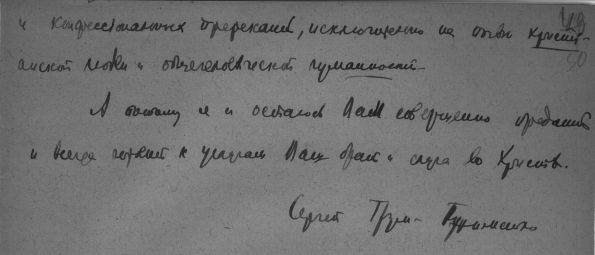 и конфессиональных пререканий, исключительно на почве христи-
анской любви и общечеловеческой гуманности
А потому я и остаюсь Вам совершенно преданный
и всегда готовый к услугам Ваш брат и слуга во Христе.
Сергей